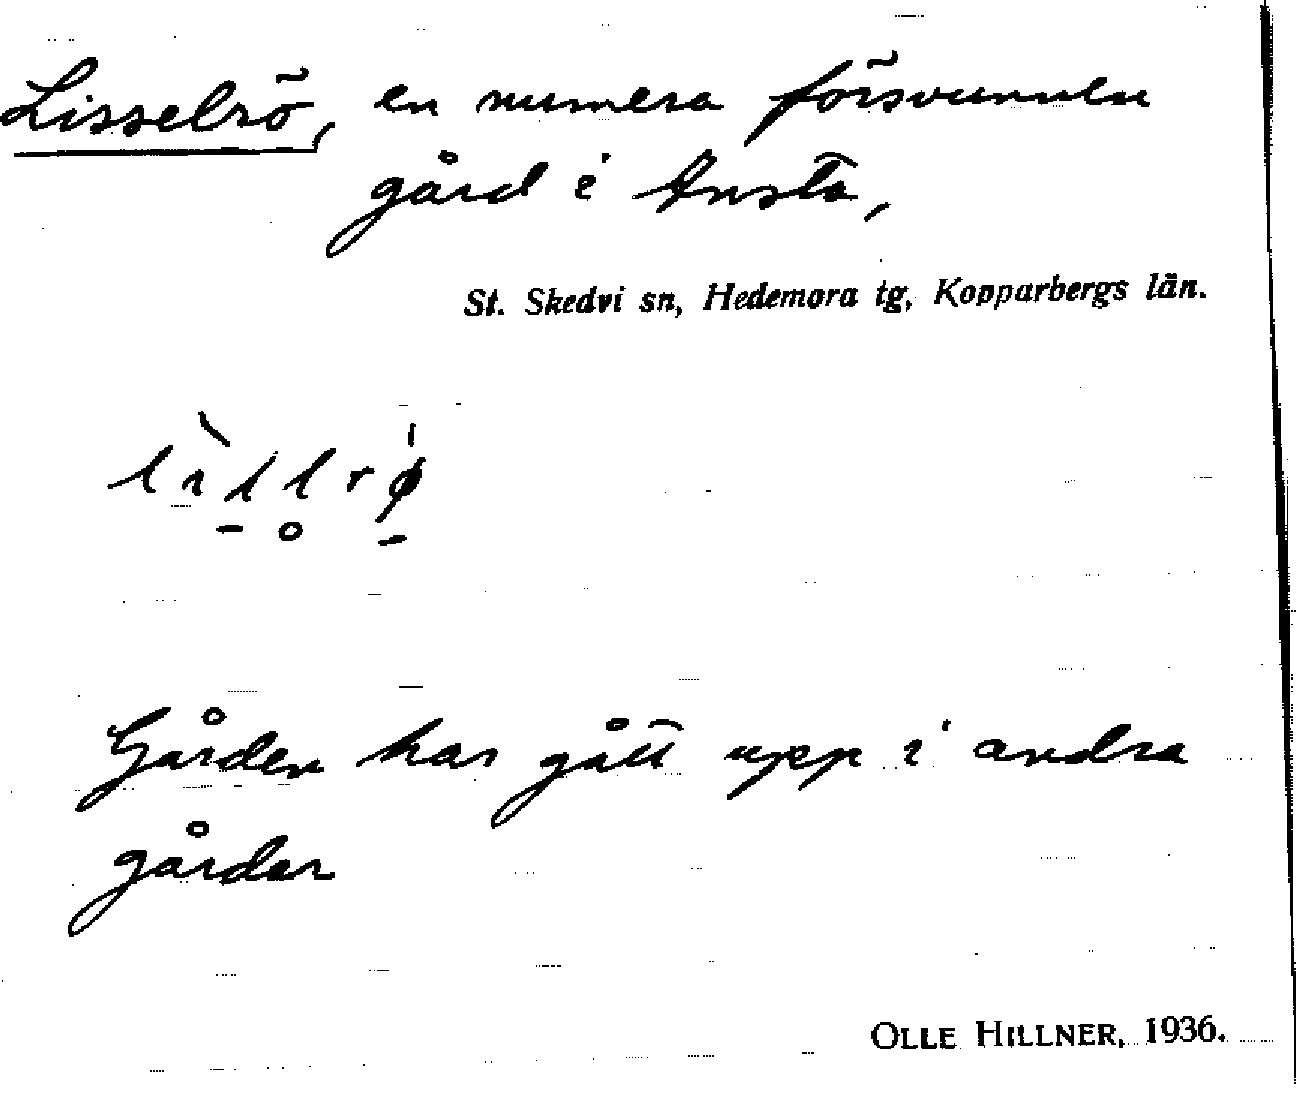 Lisselrö, en numera försvunnen
gård i Ansta,
St. Skedvi sn, Hedemora tg, Kopparbergs län.
Gården har gått upp i andra
gårdar
OLLE HILLNER, 1936.